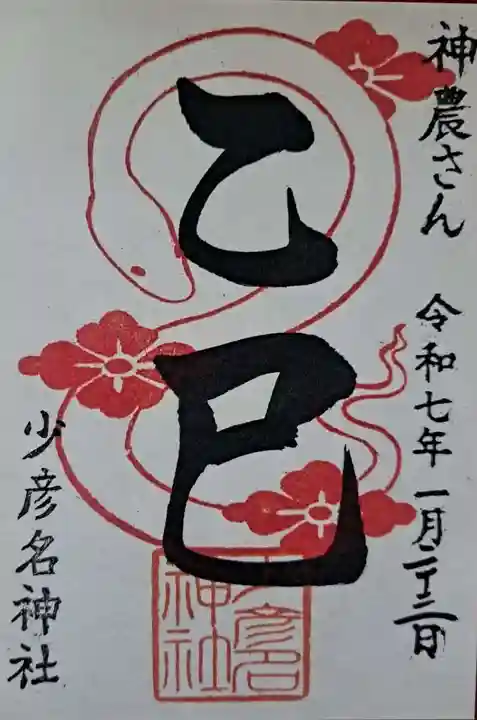 神農さん
令和七年一月二十三日
乙巳
少彦名神社
少彦名神社